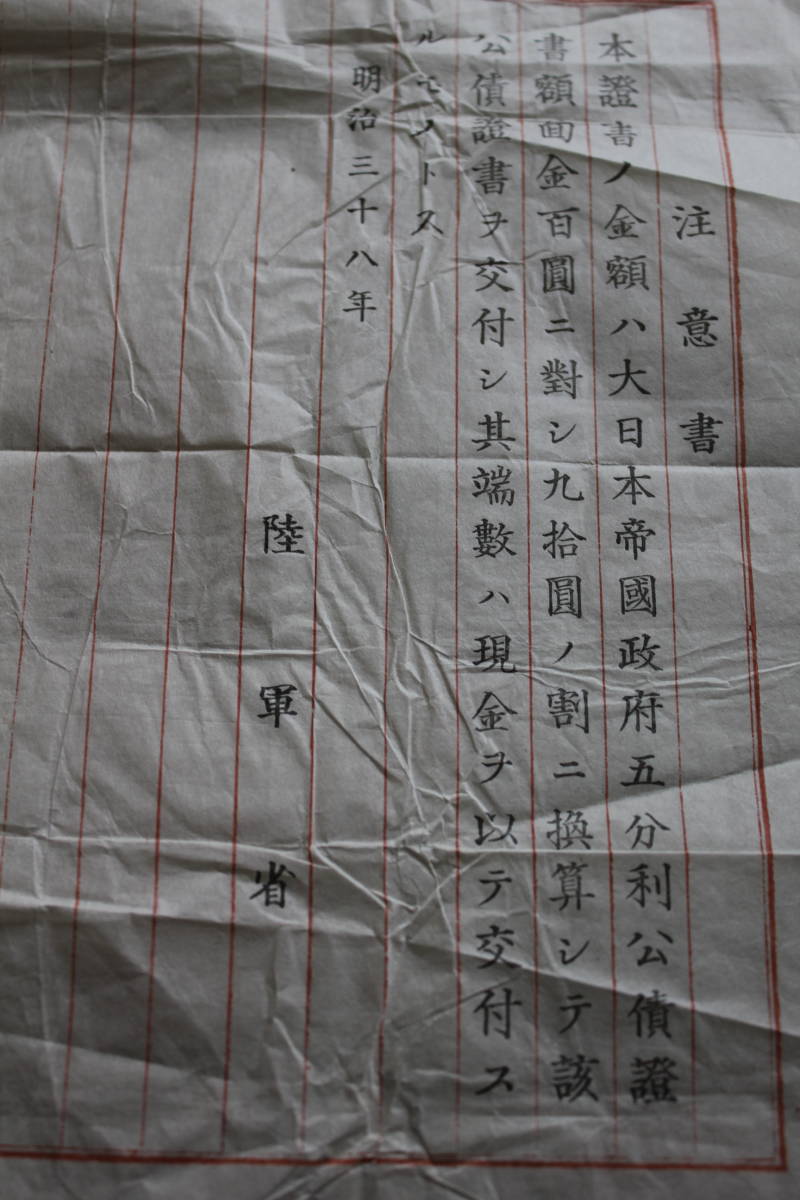 注意書
本證書ノ金額ハ大日本帝國政府五分利公債證
書額面金百圓ニ對シ九拾圓ノ割ニ換算シテ該
公債證書ヲ交付シ其端數ハ現金ヲ以テ交付ス
ルモノトス
明治三十八年
陸軍省